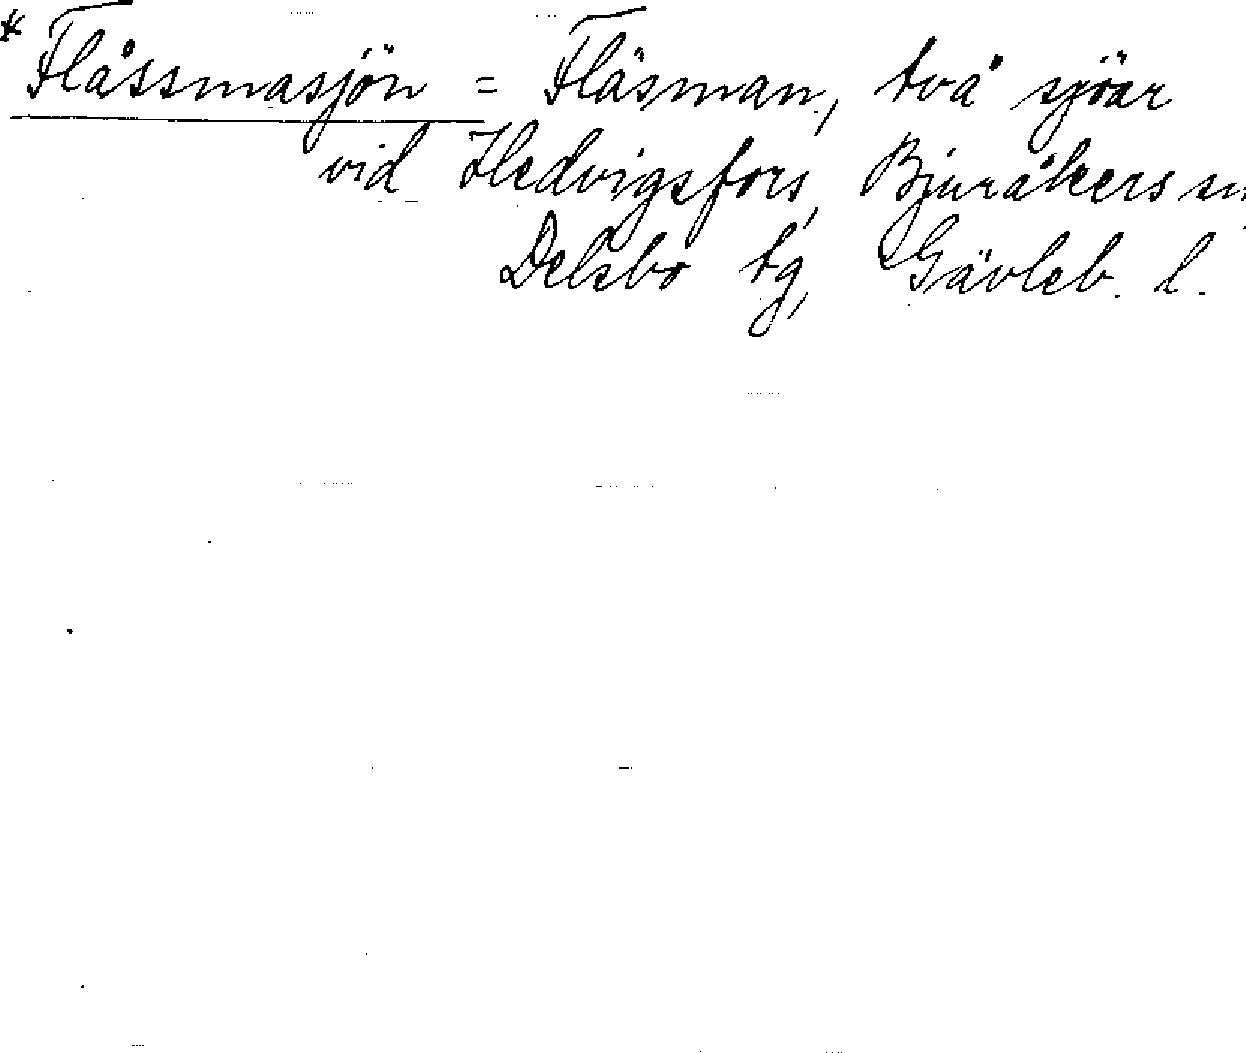 * Flåssmasjön = Fläsman, två sjöar
vid Hedvigsfors, Bjuråkers sn,
Delsbo tg, Gävleb. l.